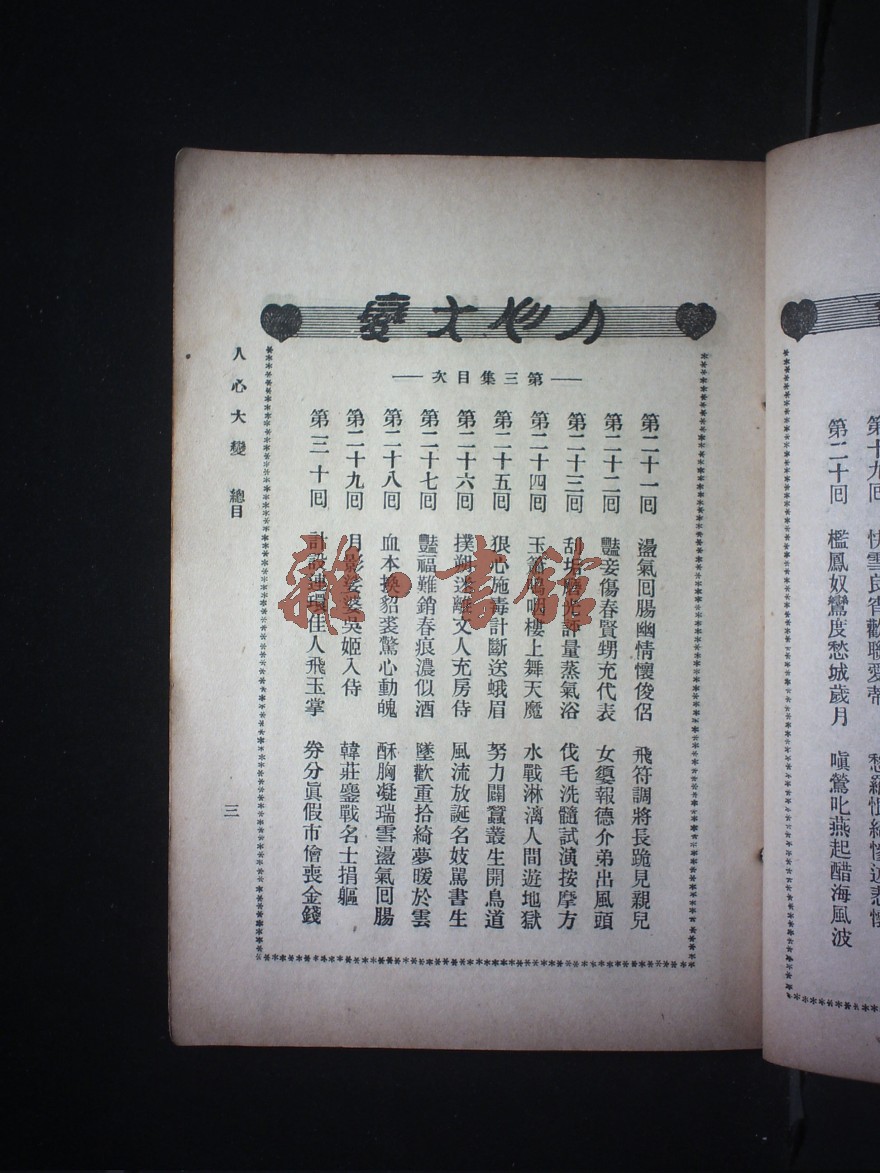 人心大變
第三集目次
第二十一回 盪氣回腸幽情懷俊侶 飛符調將長跪見親兒
第二十二回 豔妾傷春賢甥充代表 女嬃報德介弟出風頭
第二十三回 刮垢磨光評量蒸氣浴 伐毛洗髓試演按摩方
第二十四回 玉簫嗚咽樓上舞天魔 水戰淋漓人間遊地獄
第二十五回 狠心施毒計斷送蛾眉 努力闢蠶叢生開鳥道
第二十六回 撲朔迷離文人充房侍 風流放誕名妓罵書生
第二十七回 豔福難銷春痕濃似酒 墜歡重拾綺夢暖於雲
第二十八回 血本換貂裘驚心動魄 酥胸凝瑞雪盪氣回腸
第二十九回 月影婆娑吳姬入侍 韓莊鏖戰名士捐軀
第三十回 計設連環佳人飛玉掌 券分眞假市儈喪金錢
人心大變 總目
三
第十九回 快雪良宵歡聯愛蒂
第二十回 檻鳳奴鸞度愁城歲月 嗔鶯叱燕起醋海風波
雜·書館